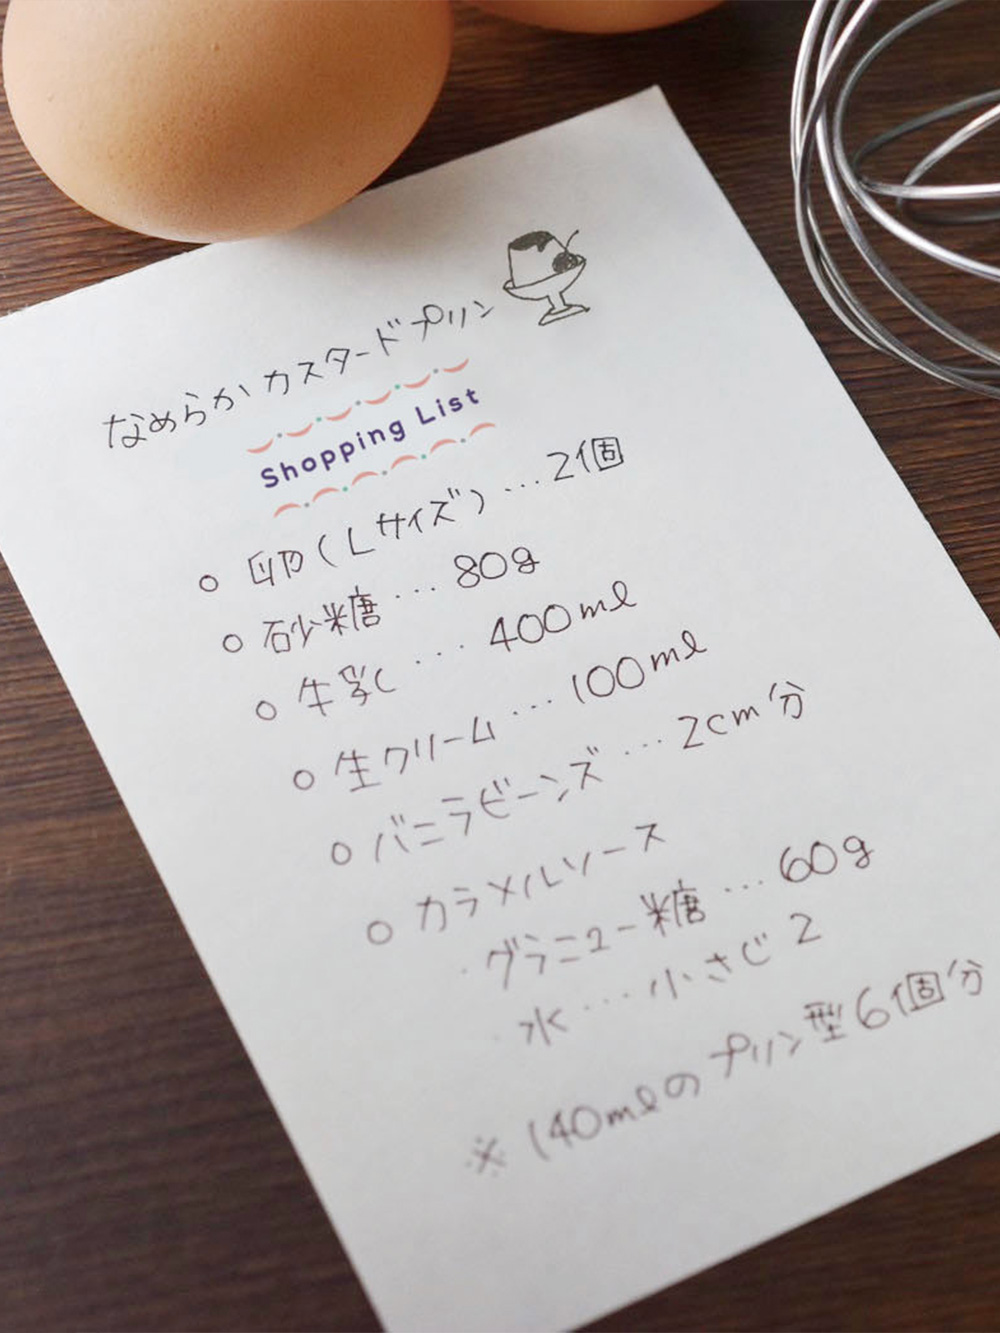 なめらかカスタードプリン
Shopping List
○ 卵(Lサイズ)…2個
○ 砂糖…80g
○ 牛乳…400ml
○ 生クリーム…100ml
○ バニラビーンズ…2cm分
○ カラメルソース
・グラニュー糖…60g
・水…小さじ2
※140mlのプリン型6個分